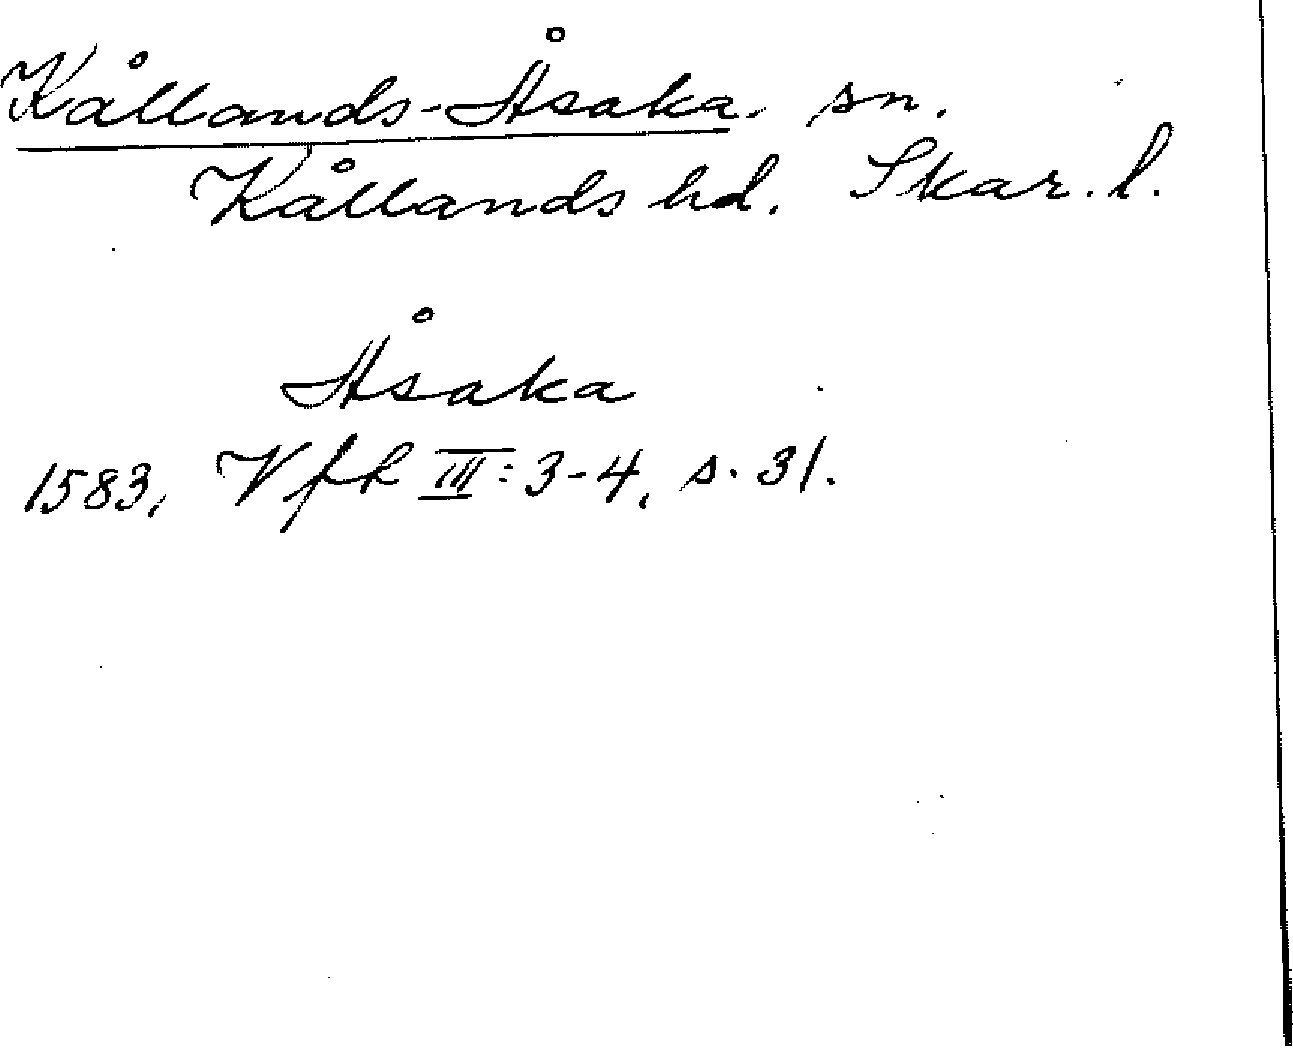 Kållands-Åsaka, sn.
Kållands hd. Skar. l.
Åsaka
1583, Vfh III: 3-4, s. 31.